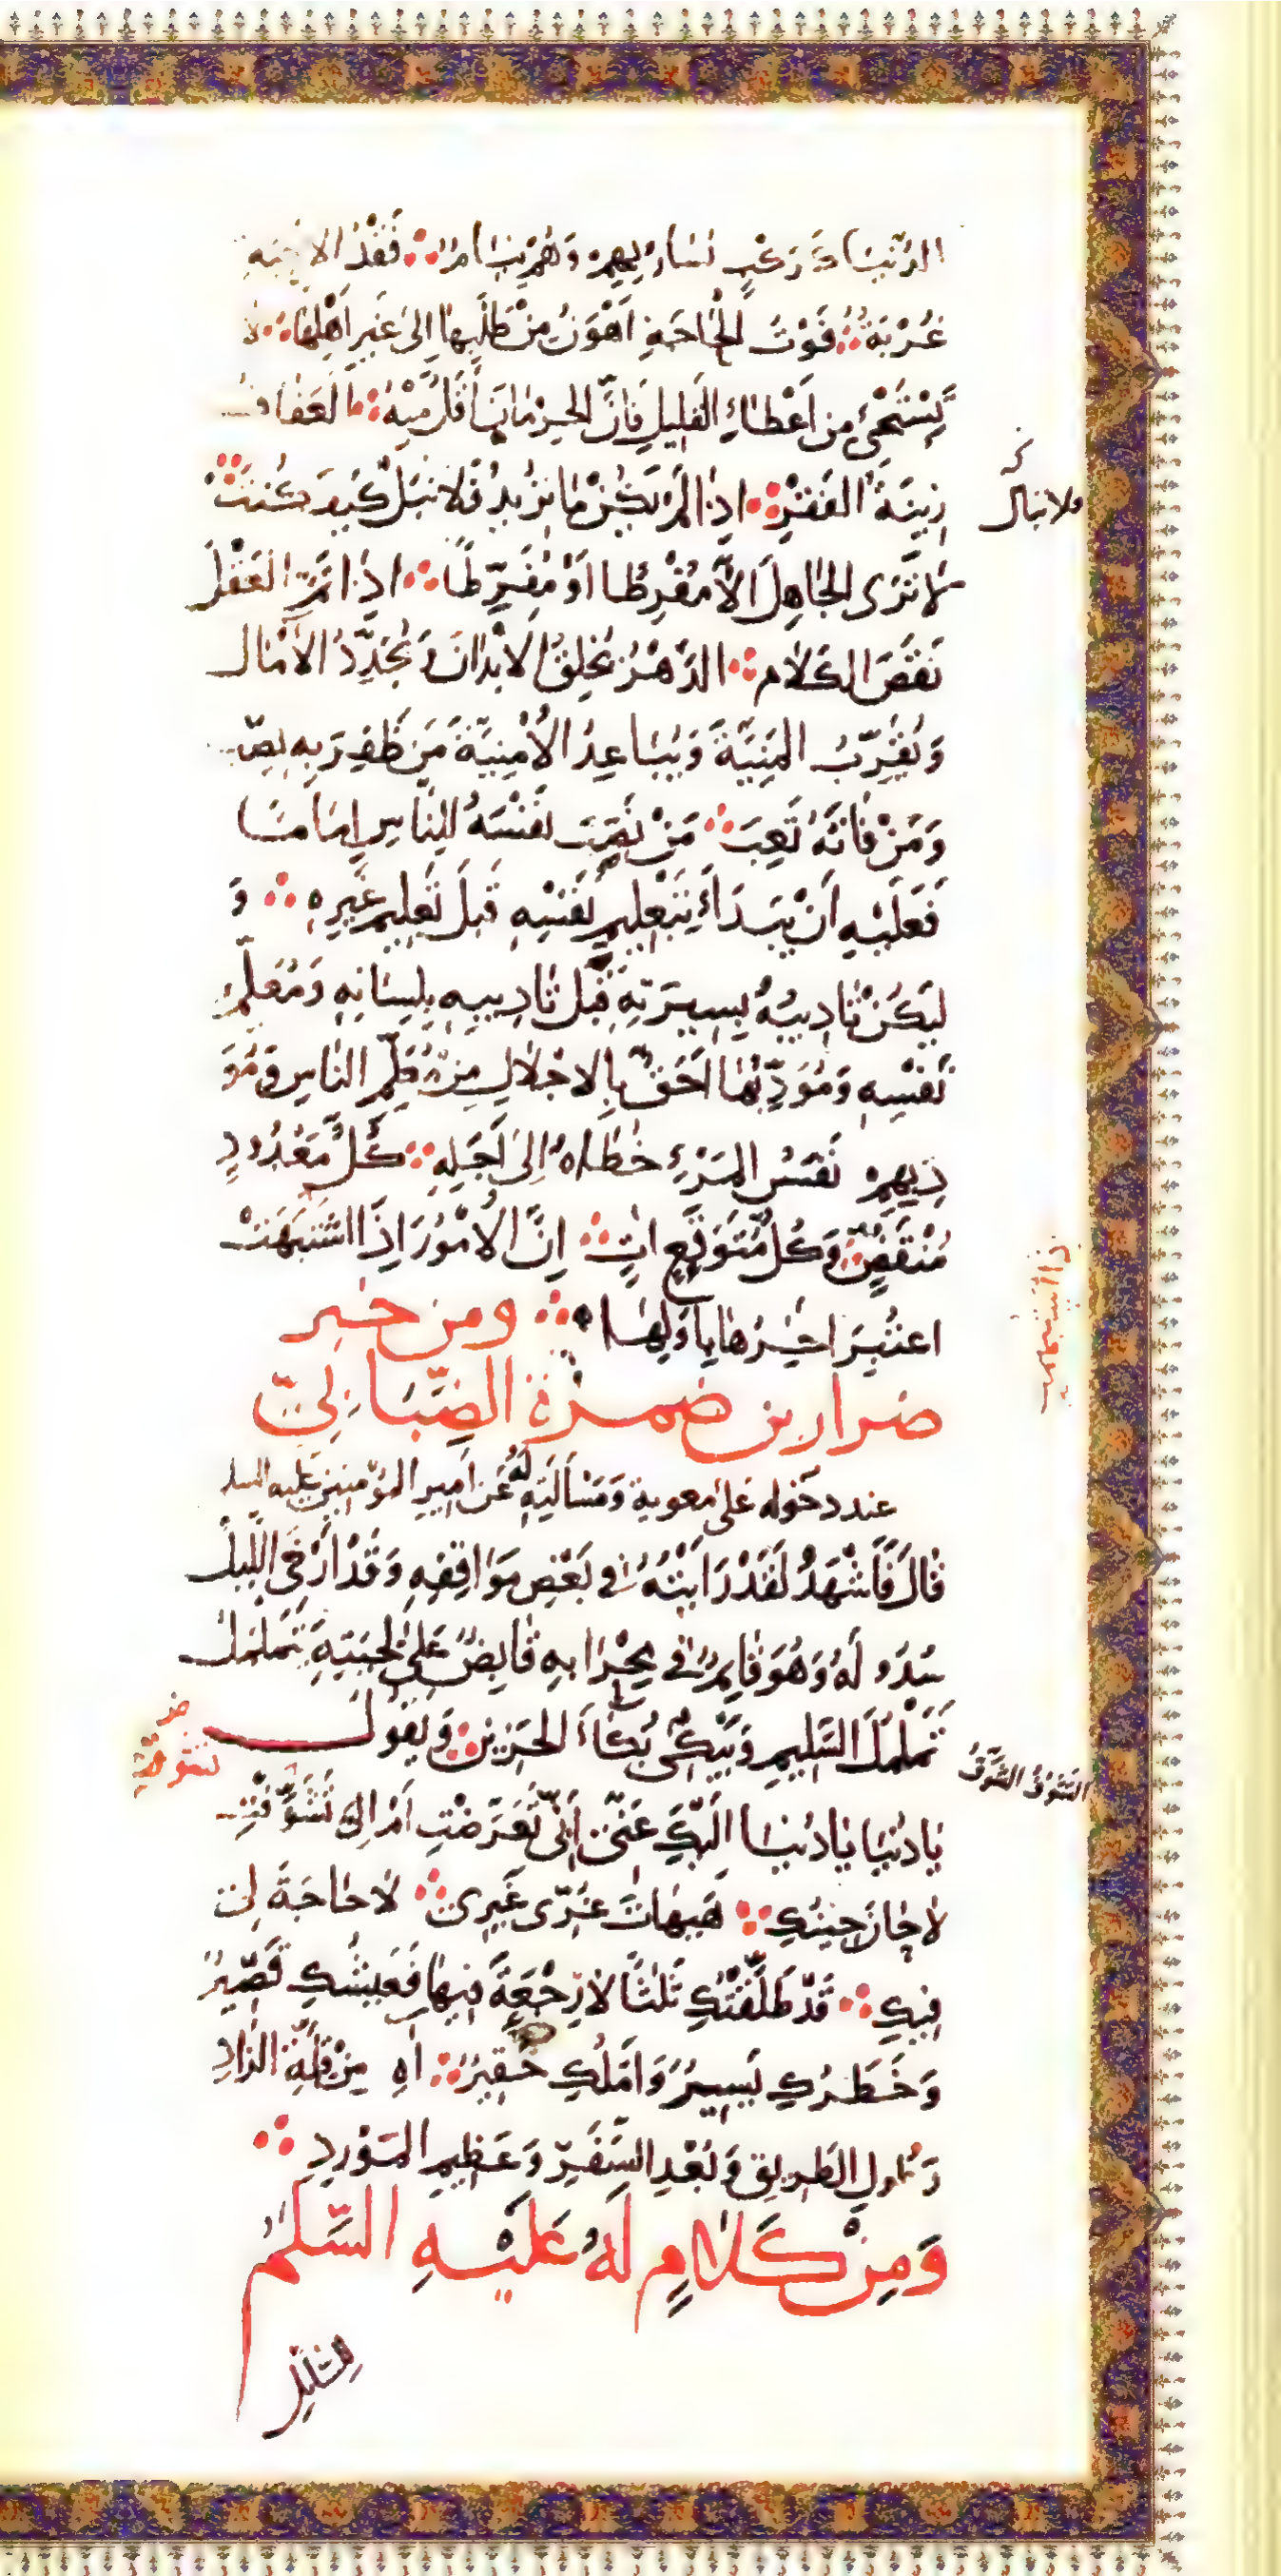 الدُّنْيَا كَرَكْبٍ يُسَارُ بِهِمْ وَهُمْ نِيَامٌ فَقْدُ الاَحِبَّةِ
غُرْبَةٌ فَوْتُ الْحَاجَةِ اَهْوَنُ مِنْ طَلَبِهَا اِلىٰ غَيْرِ اَهْلِهَا لا
يَسْتَحْيِ مِن اَعْطاءِ القَلِيلِ فَاِنَّ الحِرْمَانَ اَقَلُّ مِنْهُ العَفَافُ
زِينَةُ الفَقْرِ اِذَا لَمْ يَكُنْ مَا تُرِيدُ فَلا تُبَلْ كَيْفَ كُنْتَ
فلا تبال كـ
لاَ تَرَى الجَاهِلَ اِلاَّ مُفْرِطًا اَوْ مُفَرِّطًا اِذَا تَمَّ العَقْلُ
نَقَصَ الكَلام الدَّهْرُ يُخْلِقُ الاَبْدَانَ وَيُجَدِّدُ الاٰمَال
وَيُقَرِّبُ المَنِيَّةَ وَيُبَاعِدُ الاُمْنِيَّةَ مَن ظَفِرَ بِهِ نَصِبَ
وَمَنْ فَاتَهُ تَعِبَ مَنْ نَصَبَ نَفْسَهُ لِلنَّاسِ اِمَامًا
فَعَلَيْهِ اَنْ يَبْدَأَ بِتَعْلِيمِ نَفْسِهِ قَبْلَ تَعْلِيمِ غَيْرِهِ وَ
لْيَكُنْ تَادِيبُهُ بِسِيرَتِهِ قَبْلَ تَادِيبِهِ بِلِسَانِهِ وَمُعَلِّمُ
نَفْسِهِ وَمُؤَدِّبُهَا اَحَقُّ بِالاِجْلاَلِ مِنْ مُعَلِّمِ النَّاسِ وَمُؤَ
دِّبِهِمْ نَفَسُ المَرْءِ خُطَاهُ اِلىٰ اَجَلِهِ كُلُّ مَعْدُودٍ
مُنْقَضٍ وَكُلُّ مُتَوَقَّعٍ اٰتٍ اِنَّ الاُمُورَ اِذَا اشْتَبَهَتْ
اِذا اشتبهت
اعْتُبِرَ اٰخِرُهَا بِاَوَّلِهَا ومن خبر
ضرار بن ضمرة الضِّبَابِيِّ
عند دخوله عَلىٰ معوية وَمَسْأَلَتِهِ لَهُ عَنْ اَمِيرِ المُؤْمِنِينَ عليه السلم
قَالَ فَاَشْهَدُ لَقَدْ رَاَيْتُهُ فِي بَعْضِ مَوَاقِفِهِ وَقَدْ اَرْخَى اللَّيْلُ
سُدُولَهُ وَهُوَ قَائِمٌ فِي مِحْرَابِهِ قَابِضٌ عَلىٰ لِحْيَتِهِ يَتَمَلْمَلُ
تَمَلْمُلَ السَّلِيمِ وَيَبْكِي بُكَاءَ الحَزِينِ وَيَقُولُ
يَا دُنْيَا يَا دُنْيَا اِلَيْكِ عَنِّي اَبِي تَعَرَّضْتِ اَمْ اِلَيَّ تَشَوَّفْتِ
لاَ حَانَ حِينُكِ هَيْهَاتَ غُرِّي غَيْرِي لاَ حَاجَةَ لِي
فِيكِ قَدْ طَلَّقْتُكِ ثَلٰثًا لاَ رَجْعَةَ فِيهَا فَعَيْشُكِ قَصِيرٌ
وَخَطَرُكِ يَسِيرٌ وَاَمَلُكِ حَقِيرٌ اٰهِ مِنْ قِلَّةِ الزَّادِ
وَطُولِ الطَّرِيقِ وَبُعْدِ السَّفَرِ وَعَظِيمِ المَوْرِدِ
وَمِنْ كَلاَمٍ لَهُ عَلَيْهِ السَّلٰمُ